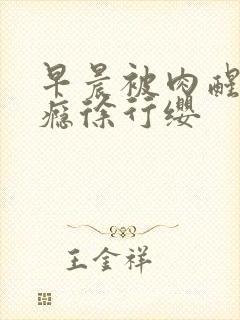 早晨被肉醒
瘾徐行缨
王金祥